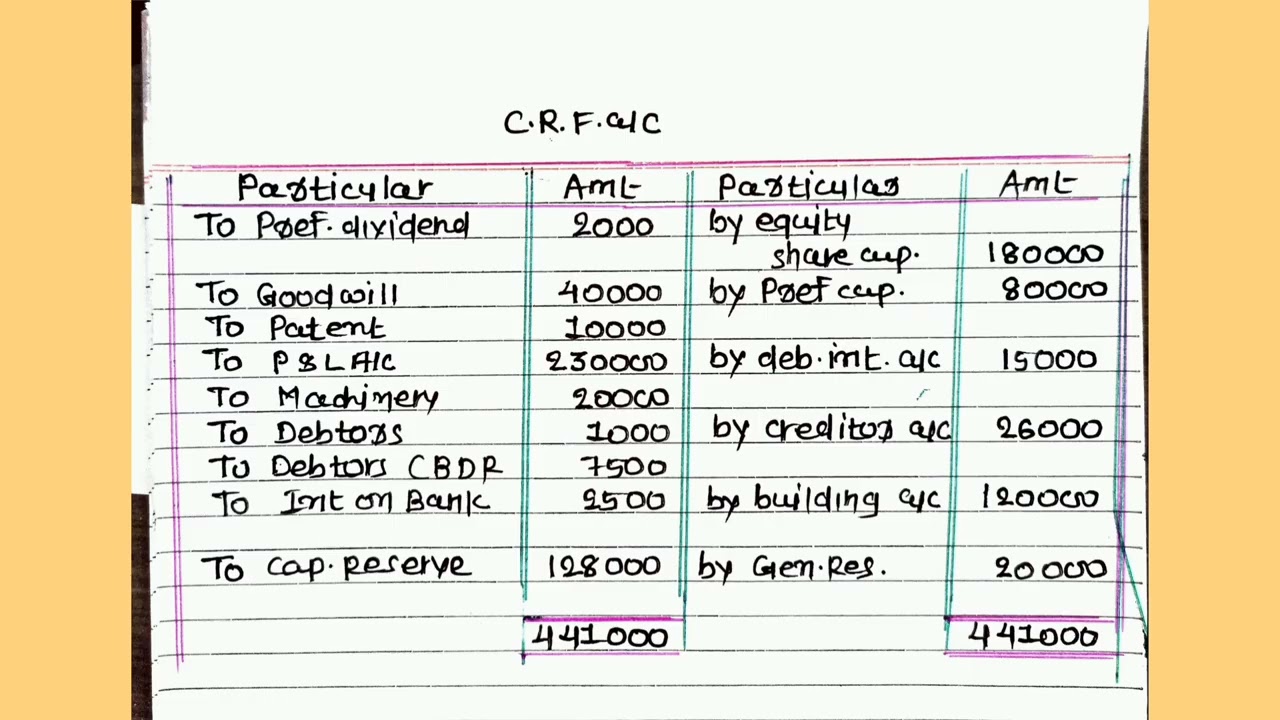 C.R.F. a/c
Particular Amt Particular Amt
To Pref. dividend 2000 by equity
share cap. 180000
To Goodwill 40000 by Pref cap. 80000
To Patent 10000
To P & L A/C 230000 by deb. int. a/c 15000
To Machinery 20000
To Debtors 1000 by creditor a/c 26000
To Debtors CBDR 7500
To Int on Bank 2500 by building a/c 120000
To cap. Reserve 128000 by Gen. Res. 20000
441000 441000